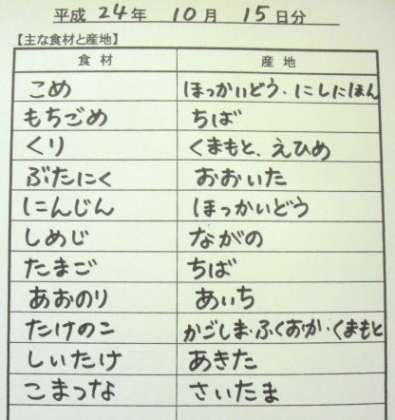 平成 24年 10月 15日分
【主な食材と産地】
食材 産地
こめ ほっかいどう・にしにほん
もちごめ ちば
くり くまもと、えひめ
ぶたにく おおいた
にんじん ほっかいどう
しめじ ながの
たまご ちば
あおのり あいち
たけのこ かごしま・ふくおか・くまもと
しいたけ あきた
こまつな さいたま